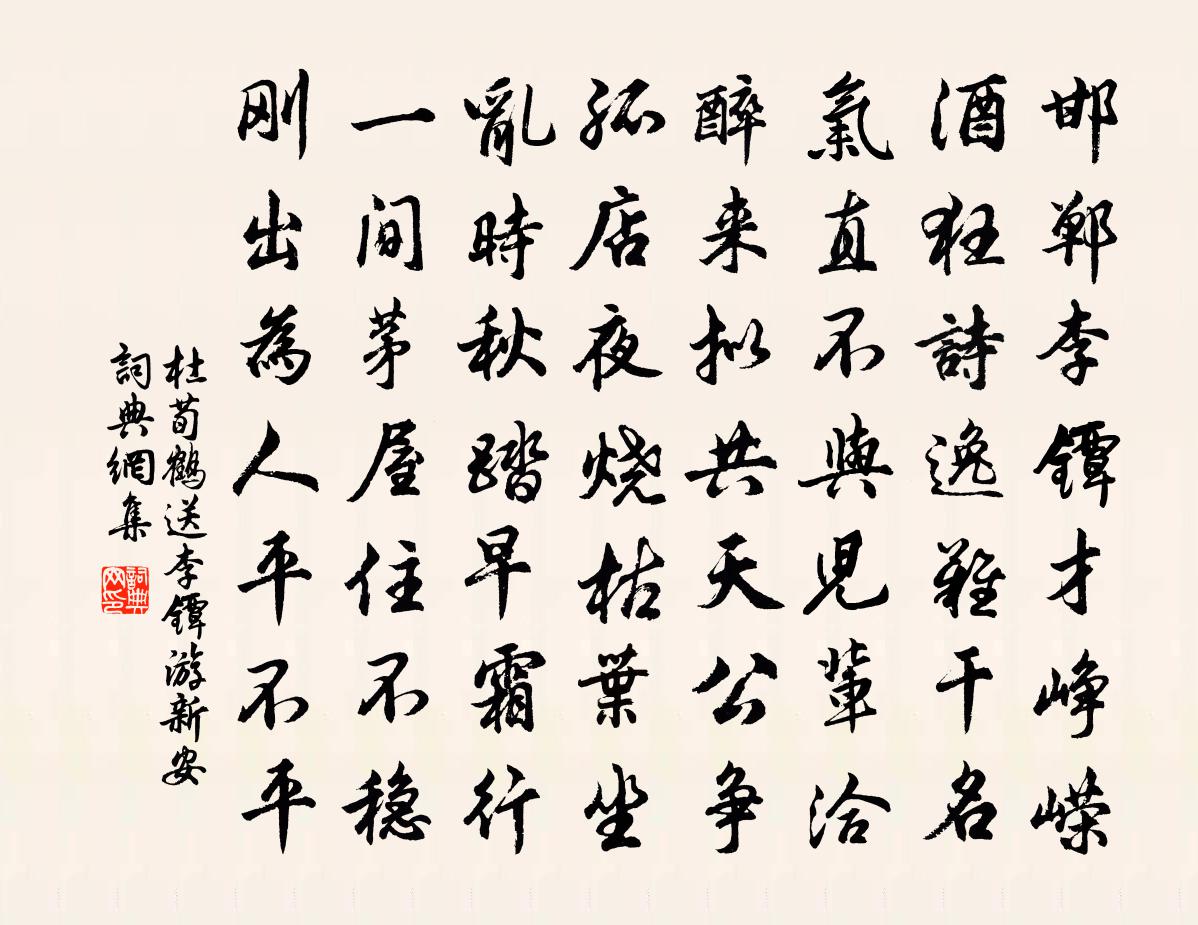 邯鄲李鐔才崢嶸
酒狂詩逸難干名
氣直不與兒輩洽
醉来拟共天公争
孤店夜燒枯葉坐
亂時秋踏早霜行
一间茅屋住不稳
刚出為人平不平
杜荀鶴送李鐔游新安
詞典網集
詞典网印